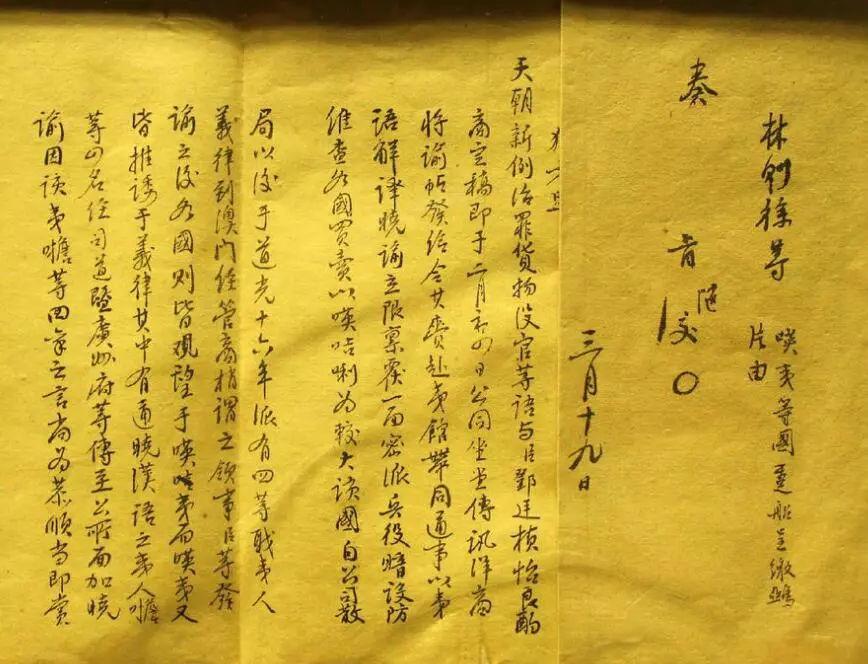 林則徐等
暎夷等國躉船呈繳鴉
片由
奏
旨
随
三月十九日
天朝新例治罪貨物沒官等語与臣鄧廷楨怡良酌
商定稿即于二月初四日公同坐堂傳訊洋商
将諭帖發给令其赍赴夷館帶同通事以夷
語解譯曉諭立限禀覆一面密派兵役暗設防
維查各國買賣以暎咭唎为較大该國自公司散
局以後于道光十六年派有四等职夷人
義律到澳门经管商梢謂之领事臣等發
諭之後各國则皆观望于暎咭夷而暎夷又
皆推诿于義律其中有通曉漢語之夷人噡
等四名经司道暨廣州府等傳至公所面加曉
諭因该夷噡等回禀之言尚为恭順当即赏